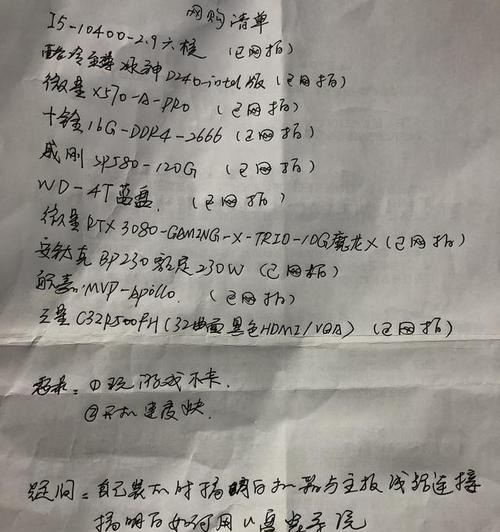 网购清单
I5-10400-2.9六核 (已网拍)
酷冷至尊冰神D240-intel版 (已网拍)
微星X570-A-PRO (已网拍)
十铨16G-DDR4-2666 (已网拍)
威刚SP580-120G (已网拍)
WD-4T蓝盘 (已网拍)
微星RTX3080-GAMING-X-TRIO-10G魔龙X (已网拍)
安钛克BP230额定230W (已网拍)
MVP-Apollo. (已网拍)
三星C32R500FH (32曲面黑色HDMI/VGA) (已网拍)
要求: ①玩游戏不卡.
②开机速度快.
疑问: 自己装机时搞明白机器与主板线路连接
搞明白如何用U盘装系统